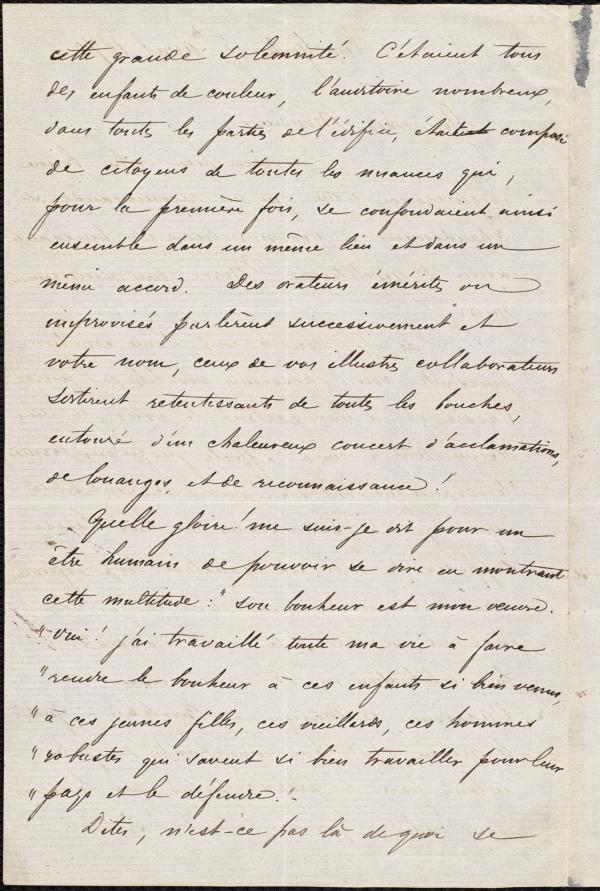 cette grande solemnité. C'étaient tous
des enfants de couleur, l'auditoire nombreux,
dans toutes les parties de l'édifice, était composé
de citoyens de toutes les nuances qui,
pour la première fois, se confondaient ainsi
ensemble dans un même lieu et dans un
même accord. Des orateurs émérites ou
improvisés parlèrent successivement et
votre nom, ceux de vos illustres collaborateurs
sortirent retentissants de toutes les bouches,
entouré d'un chaleureux concert d'acclamations,
de louanges, et de reconnaissance!
Quelle gloire! me suis-je dit pour un
être humain de pouvoir se dire en montrant
cette multitude: "son bonheur est mon œuvre.
"Oui! j'ai travaillé toute ma vie à faire
"rendre le bonheur à ces enfants si bien venus,
"à ces jeunes filles, ces vieillards, ces hommes
"robustes qui savent si bien travailler pour leur
"pays et le défendre."
Dites, n'est-ce pas là de quoi se